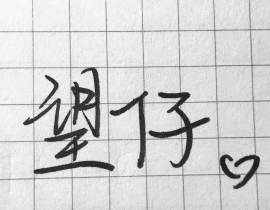 望仔。